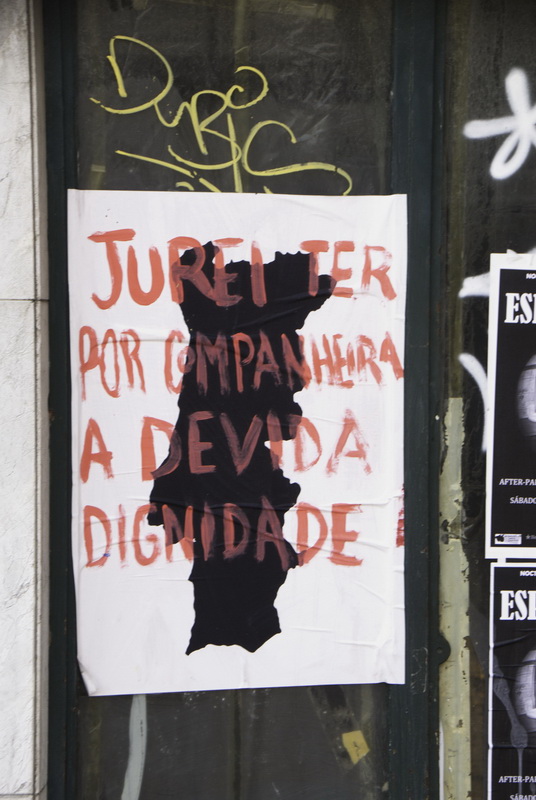 JUREI TER
POR COMPANHEIRA
A DEVIDA
DIGNIDADE
NO
ES
AFTER-PA
SÁBADO
NOCT
ES
AFTER-PA
SÁBADO